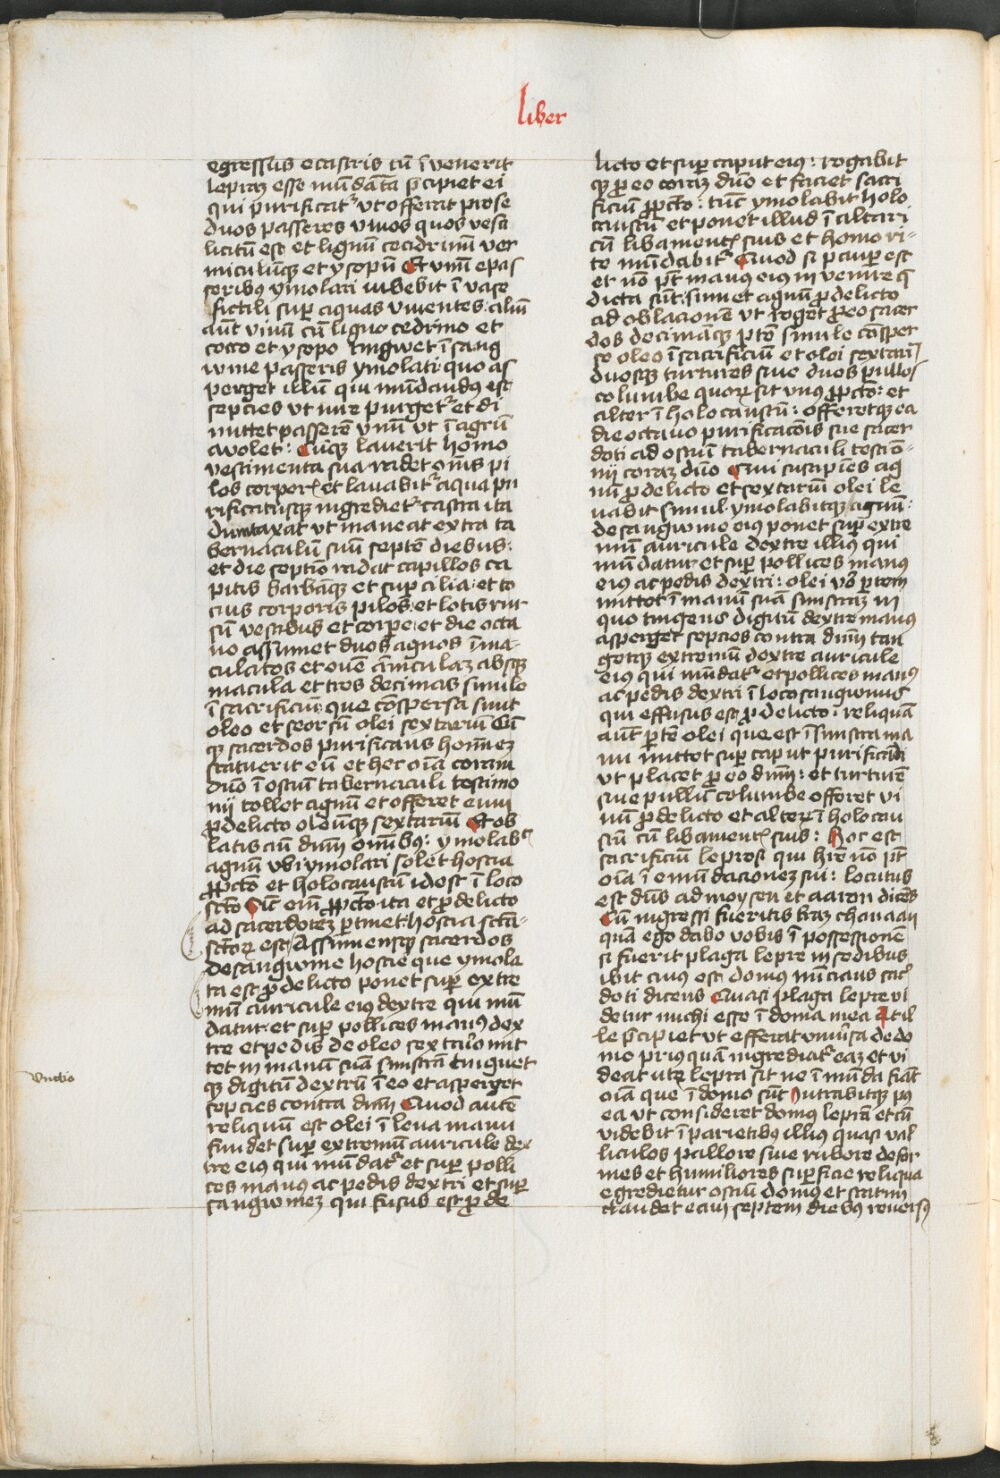 liber
egressus e castris cū īvenerit
lepraz esse mūdatā p̄cipiet ei
qui purificat᷑ ut offerat pro se
duos passeres vivos quos vesci
licitū est et lignum cedrinū ver
miculūqꝫ et ysopū Et vnum e pas
seribus ymolari iubebit ī vase
fictili sup̱ aquas viventes: aliū
aūt vivū cū ligno cedrino et
cocco et ysopo tinguet ī sang
wine passeris ymolati quo as
perget illū qui mūdandus est
sepcies ut iure purget᷑ et di
mittet passerē vivū ut ī agrū
avolet: Cūqꝫ laverit homo
vestimenta sua radet oēs pi
los corporis et lavabit᷑ aqua pu
rificatusqꝫ ingrediet᷑ castra ita
dumtaxat ut maneat extra ta
bernaculū suū septē diebus:
et die septīo radat capillos ca
pitis barbāqꝫ et supcilia et to
cius corporis pilos: et lotis rur
sū vestibus et corpe: et die octa
vo assumet duos agnos īma-
culatos et ovē āniculaz absqꝫ
macula et tres decimas simile
ī sacrificiū que cōspersa sint
oleo et seorsū olei sextariū Cū
qꝫ sacerdos purificans homiez
statuerit eū et hec oīa coram
dūo ī ostiū tabernaculi testimo
nij tollet agnū et offeret eum
ꝓ delicto oleūqꝫ sextariū Et ob
latis aū dūm omībꝫ: ymolabit
agnū ubi ymolari solet hostia
ꝓ pctō et holocaustū id est ī loco
sctō Sic̄ eīm ꝓ pctō ita et ꝓ delicto
ad sacerdotez ptinet hostia sctā-
sctorꝫ est Assumensqꝫ sacerdos
de sangwine hostie que ymola
ta est ꝓ delicto ponet sup̱ extre
mū auricule eiꝰ dextre qui mū
datur et sup̱ pollices manꝰ dex
tre et pedis de oleo sextarō mit
tet in manū suā sinistrā tinguet
qꝫ digitū dextrū ī eo et asperget
sepcies contra dūm Quod autē
reliquū est olei ī leva manu
fundet sup̱ extremū auricule dex
tre eiꝰ qui mūdat᷑ et sup̱ polli
ces manꝰ ac pedis dextri et sup̱
sangwinez qui fusus est ꝓ de
unctio
licto et sup̱ caput eiꝰ: rogabit
qꝫ ꝓ eo coraz dūo et faciet sacri
ficiū ꝓ pctō: tūc ymolabit holo
caustū et ponet illud ī altari
cū libamentis suis et homo ri-
te mūdabit᷑ Quod si pauper est
et nō pt̄ manus eiꝰ invenire q̄
dicta sūt: sumet agnū ꝓ delicto
ad oblacionē ut roget ꝓ eo sacer
dos decimāqꝫ ptē simile cōsper
se oleo ī sacrificiū et olei sextariū
duosqꝫ turtures sive duos pullos
columbe quorꝫ sit vnꝰ ꝓ pctō: et
alter ī holocaustū: offeretqꝫ ea
die octavo purificacōis sue sacer
doti ad ostiū tabernaculi testimō-
nij coraz dūo Qui suscipiēs ag
nū ꝓ delicto et sextariū olei le
vabit simul ymolabitqꝫ agnū:
de sangwine eiꝰ ponet sup̱ extre
mū auricule dextre illiꝰ qui
mūdatur et sup̱ pollices manꝰ
eiꝰ ac pedis dextri: olei vō ptem
mittet ī manū suā sinistraz in
quo tingens digitū dextre manꝰ
asperget sepcies contra dūm tan
getqꝫ extremū dextre auricule
eiꝰ qui mūdat᷑ et pollices manꝰ
ac pedis dextri ī loco sangwinis
qui effusus est ꝓ delicto: reliquā
aūt ptē olei que est ī sinistra ma
nu mittet sup̱ caput purificati
ut placet ꝓ eo dūm: et turturē
sive pullū columbe offeret vi
nū ꝓ delicto et alterū ī holocau
stū cū libamentis suis: Hoc est
sacrificiū leprosi qui hr̄e nō pt̄
oīa ī emūdacionez sui: locutus
est dūs ad moysen et aaron dicēs
Cū ingressi fueritis traz chanaan
quā ego dabo vobis ī possessionē
si fuerit plaga lepre in edibus
ibit cuiꝰ est domꝰ nūcians sac̄
doti dicens Quasi plaga lepre vi
detur michi esse ī domo mea At il
le p̄cipiet ut efferat univ̄sa de do
mo priꝰ quā ingrediat᷑ eaz et vi
deat utrū lepra sit ne īmūda fiāt
oīa que ī domo sūt Intrabitqꝫ pꝰ
ea ut consideret domꝰ leprā et cū
viderit ī parietibꝰ illiꝰ quasi val
liculos pallore sive rubore defor
mes et humiliores sup̱ficie reliqua
egredietur ostiū domꝰ et statim
claudet eam septem diebꝰ reversꝰ